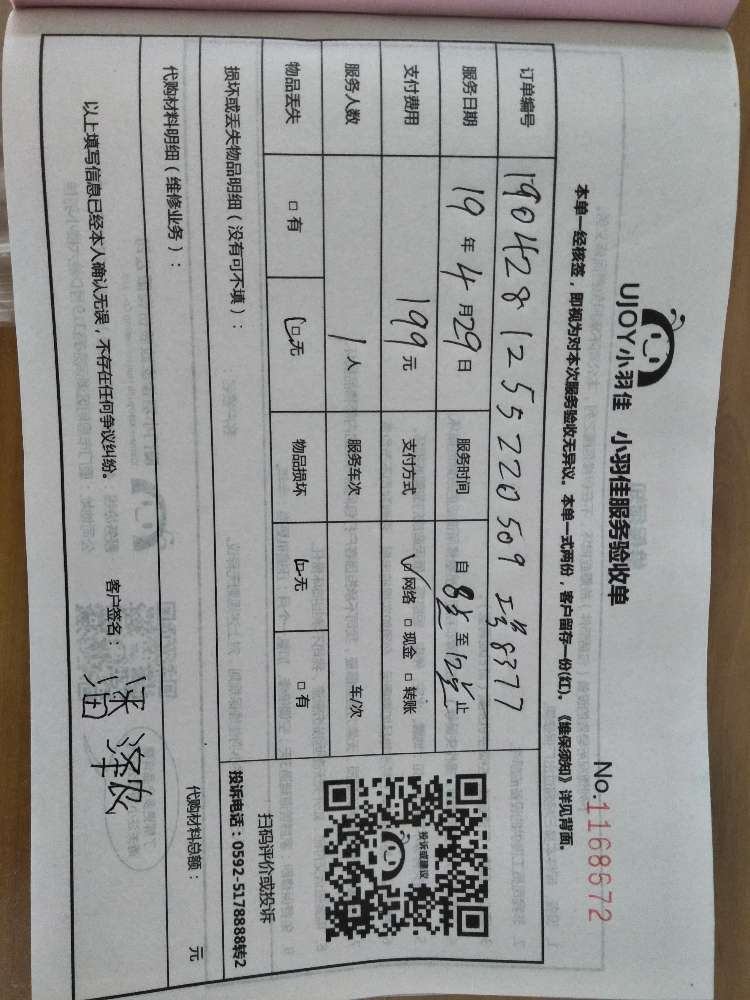 UJOY小羽佳 小羽佳服务验收单
No.1168672
本单一经核签，即视为对本次服务验收无异议。本单一式两份，客户留存一份(红)。《维保须知》详见背面。
订单编号 1904281255220509 工号8377
服务日期 19年4月29日 服务时间 自8点至12点止
支付费用 199元 支付方式 ☑网络 □现金 □转账
服务人数 1人 服务车次 车/次
物品丢失 □有 ☑无 物品损坏 ☑无 □有
投诉或建议
扫码评价或投诉
投诉电话：0592-5178888转2
损坏或丢失物品明细（没有可不填）：
代购材料明细（维修业务）： 代购材料总额： 元
以上填写信息已经本人确认无误，不存在任何争议纠纷。 客户签名：